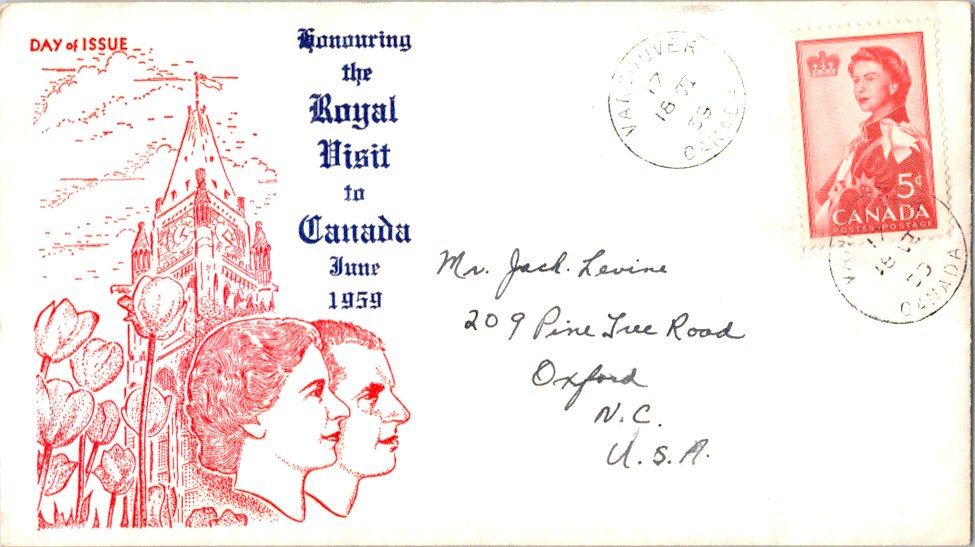 DAY of ISSUE
Honouring
the
Royal
Visit
to
Canada
June
1959
VANCOUVER
17
18 VI
59
CANADA
5¢
CANADA
POSTES-POSTAGE
Mr. Jack Levine
209 Pine Tree Road
Oxford
N.C.
U.S.A.
17
18 VI
59
CANADA